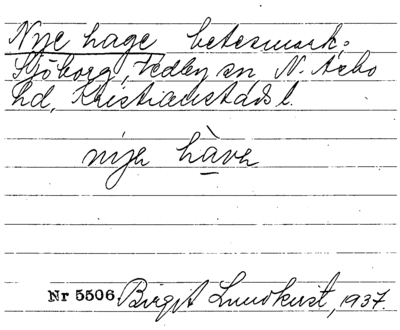 Nye hage betesmark;
Sjöborg, Vedby sn N. Åsbo
hd, Kristianstads l.
nyə hàvə
Nr 5506. Birgit Lundkvist, 1937.